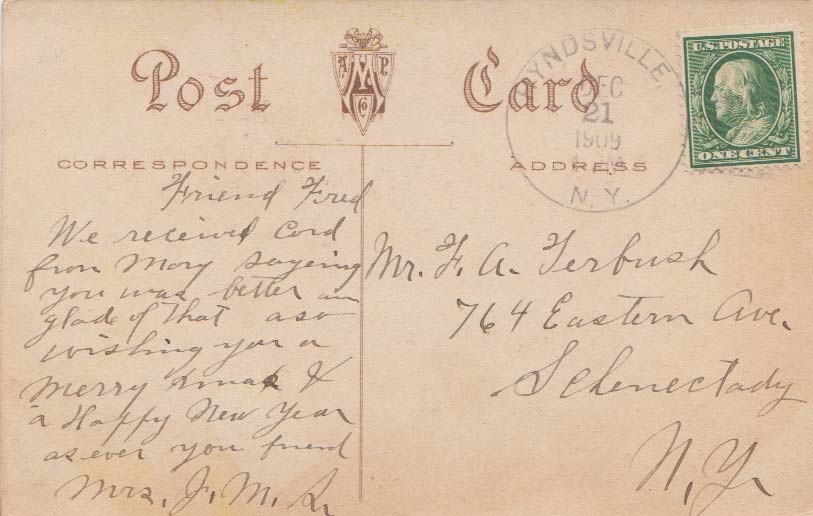 Post Card
A M P Co
LYNDSVILLE,
DEC
21
1909
N. Y.
U.S. POSTAGE
ONE CENT
CORRESPONDENCE
ADDRESS
Friend Fred
We received Card
from Mary sayeing
you was better am
glade of that aso
wishing you a
Merry Xmas &
a Happy New Year
as ever you friend
Mrs. J. M. L.
Mr. F. A. Terbush
764 Eastern Ave.
Schenectady
N. Y.